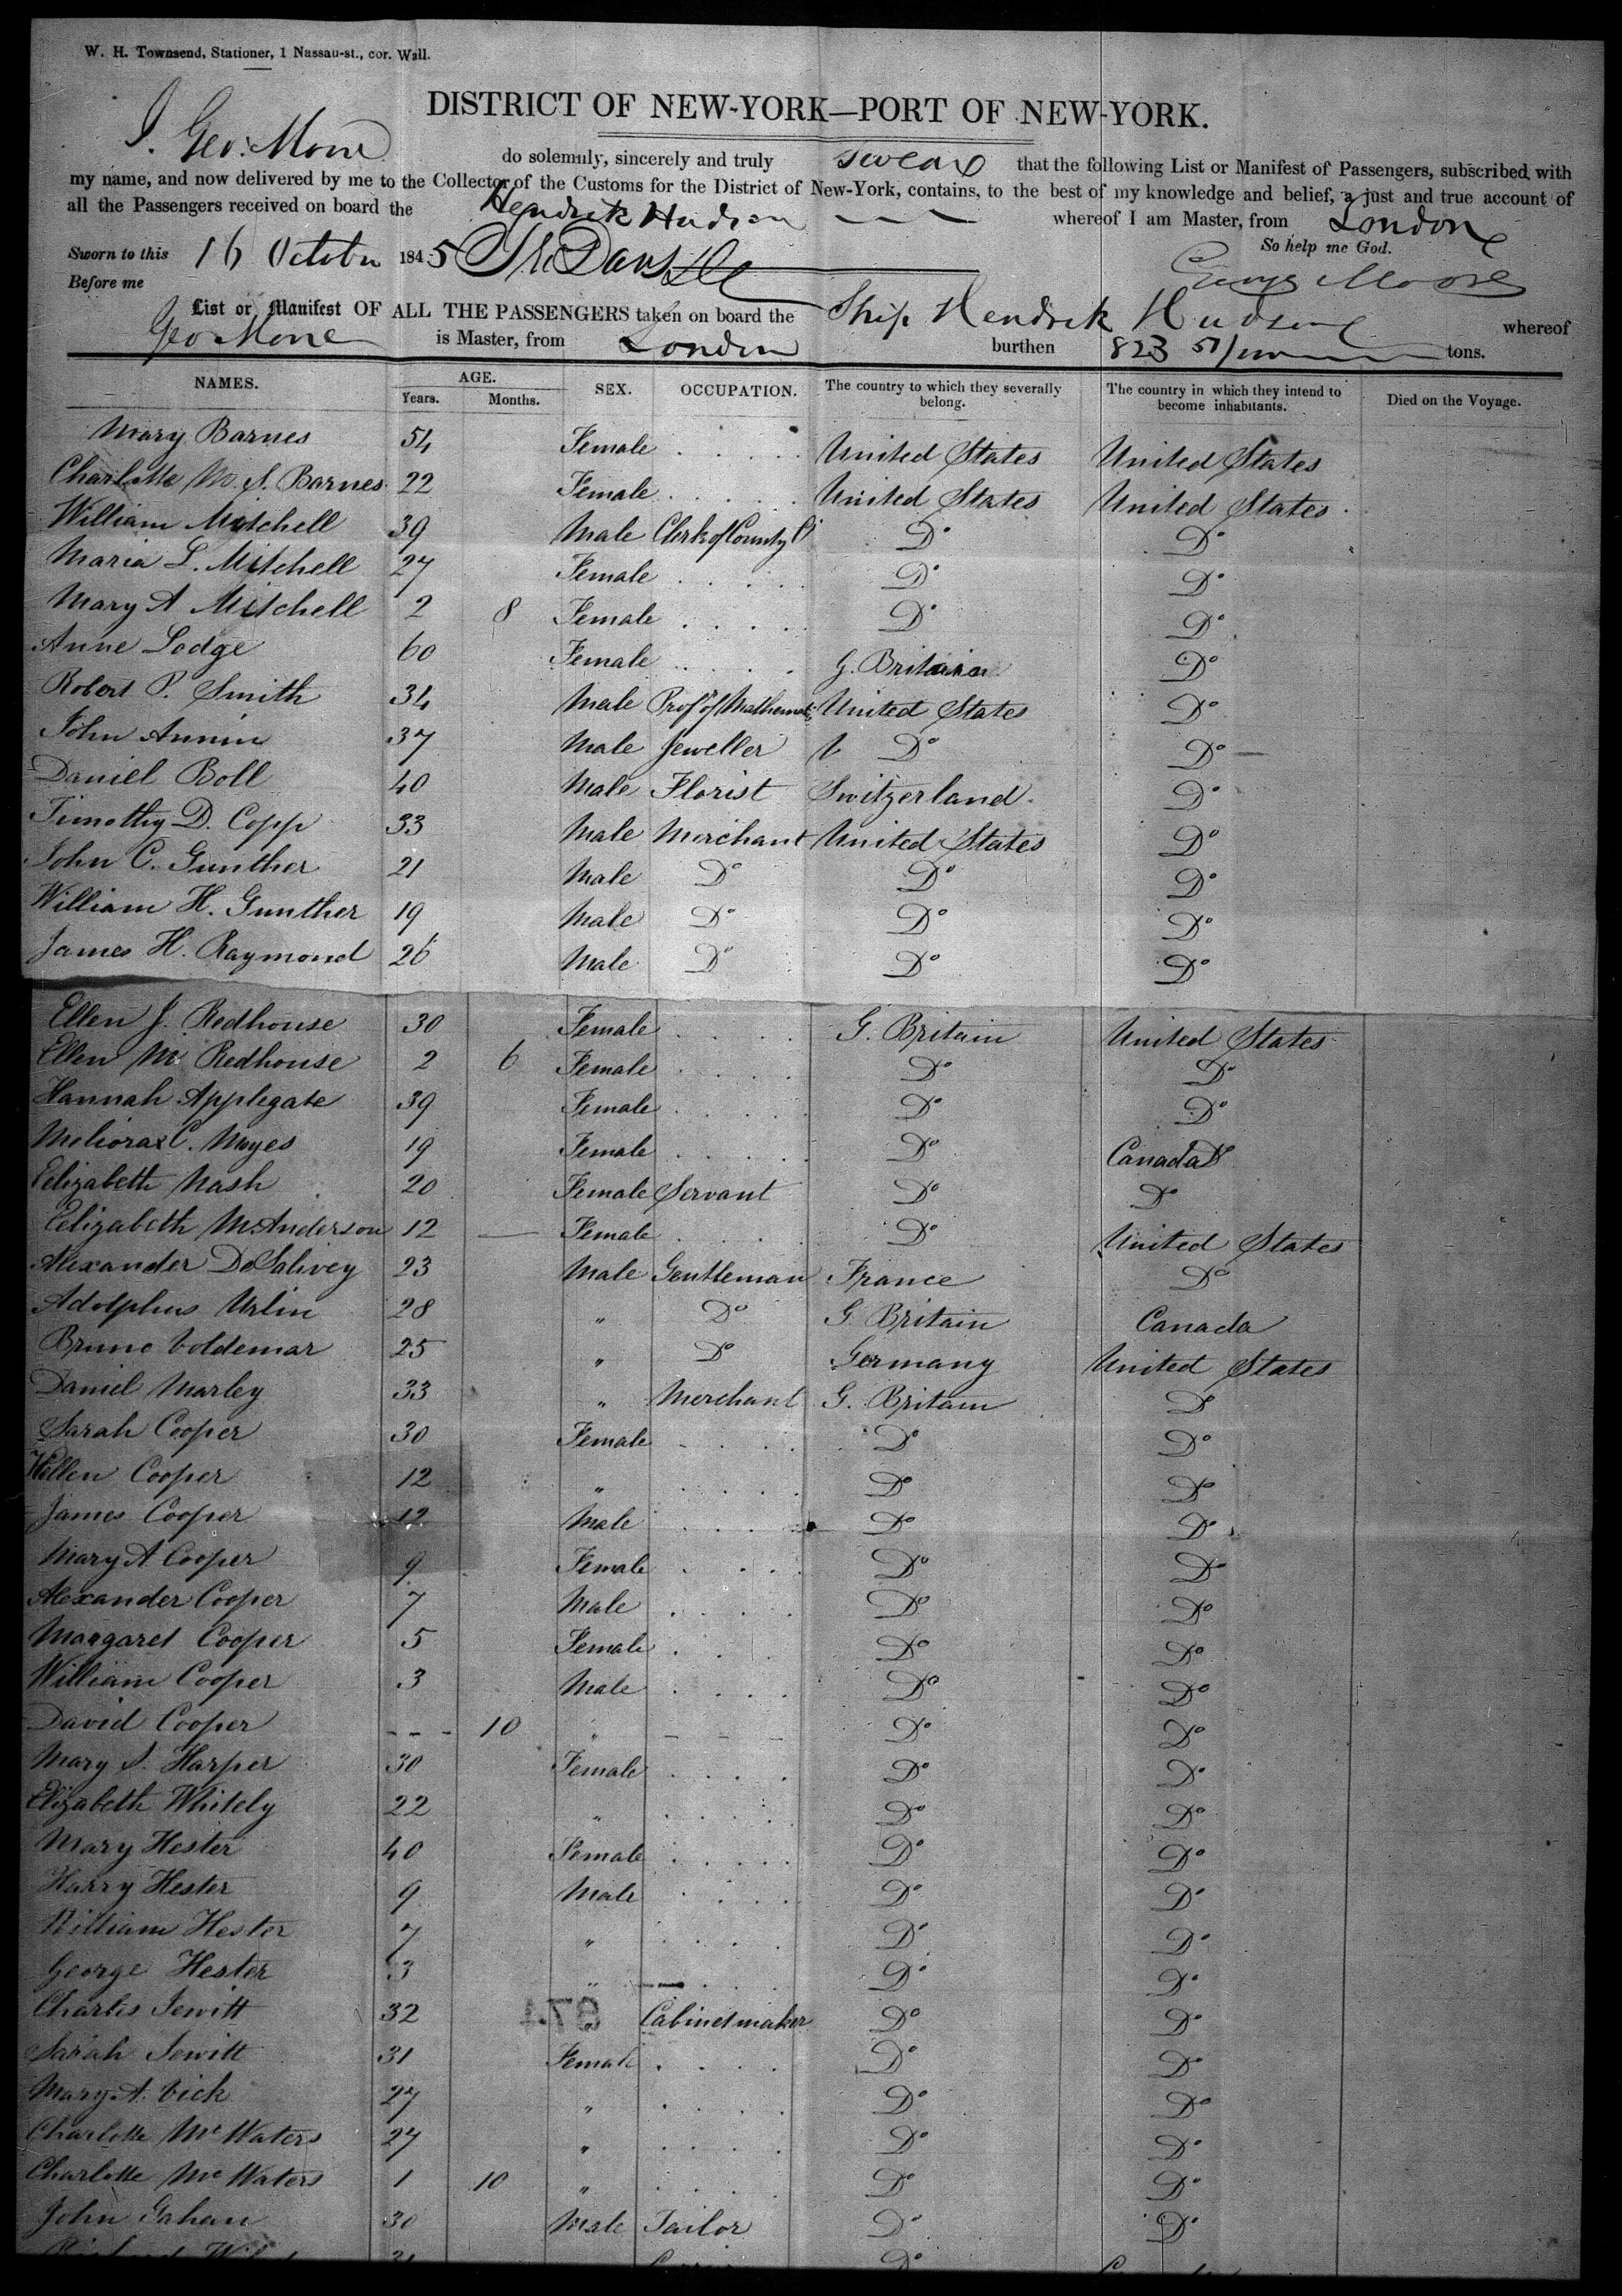 W. H. Townsend, Stationer, 1 Nassau-st., cor. Wall.
DISTRICT OF NEW-YORK—PORT OF NEW-YORK.
I. Geo: Moore do solemnly, sincerely and truly swear that the following List or Manifest of Passengers, subscribed with
my name, and now delivered by me to the Collector of the Customs for the District of New-York, contains, to the best of my knowledge and belief, a just and true account of
all the Passengers received on board the Hendrick Hudson whereof I am Master, from London
Sworn to this 16 October 1845 So help me God.
Before me George Moore
List or Manifest OF ALL THE PASSENGERS taken on board the Ship Hendrick Hudson whereof
Geo Moore is Master, from London burthen 823 tons.
NAMES. AGE. SEX. OCCUPATION. The country to which they severally belong. The country in which they intend to become inhabitants. Died on the Voyage.
Years. Months.
Mary Barnes 54 Female United States United States
Charlotte M. S. Barnes 22 Female United States United States
William Mitchell 39 Male Clerk of County Do Do
Maria L. Mitchell 27 Female Do Do
Mary A Mitchell 2 8 Female Do Do
Anne Lodge 60 Female G. Britain Do
Robert P. Smith 34 Male Prof of Mathemat United States Do
John Annin 37 Male Jeweller Do Do
Daniel Boll 40 Male Florist Switzerland Do
Timothy D. Copp 33 Male Merchant United States Do
John C. Gunther 21 Male Do Do Do
William H. Gunther 19 Male Do Do Do
James H. Raymond 26 Male Do Do Do
Ellen J. Redhouse 30 Female G. Britain United States
Ellen M. Redhouse 2 6 Female Do Do
Hannah Applegate 39 Female Do Do
Meliora C. Mayes 19 Female Do Canada
Elizabeth Nash 20 Female Servant Do Do
Elizabeth M. Anderson 12 Female Do United States
Alexander DeSalivey 23 Male Gentleman France Do
Adolphus Urlin 28 " Do G Britain Canada
Bruno Voldemar 25 " Do Germany United States
Daniel Marley 33 " Merchant G. Britain Do
Sarah Cooper 30 Female Do Do
Hellen Cooper 12 " Do Do
James Cooper 12 Male Do Do
Mary A Cooper 9 Female Do Do
Alexander Cooper 7 Male Do Do
Margaret Cooper 5 Female Do Do
William Cooper 3 Male Do Do
David Cooper - - - 10 " Do Do
Mary S. Harper 30 Female Do Do
Elizabeth Whitely 22 " Do Do
Mary Hester 40 Female Do Do
Harry Hester 9 Male Do Do
William Hester 7 " Do Do
George Hester 3 " Do Do
Charles Jewitt 32 " Cabinetmaker Do Do
Sarah Jewitt 31 Female Do Do
Mary A. Vick 27 " Do Do
Charlotte Mc Waters 27 " Do Do
Charlotte Mc Waters 1 10 " Do Do
John Gahan 30 Male Tailor Do Do